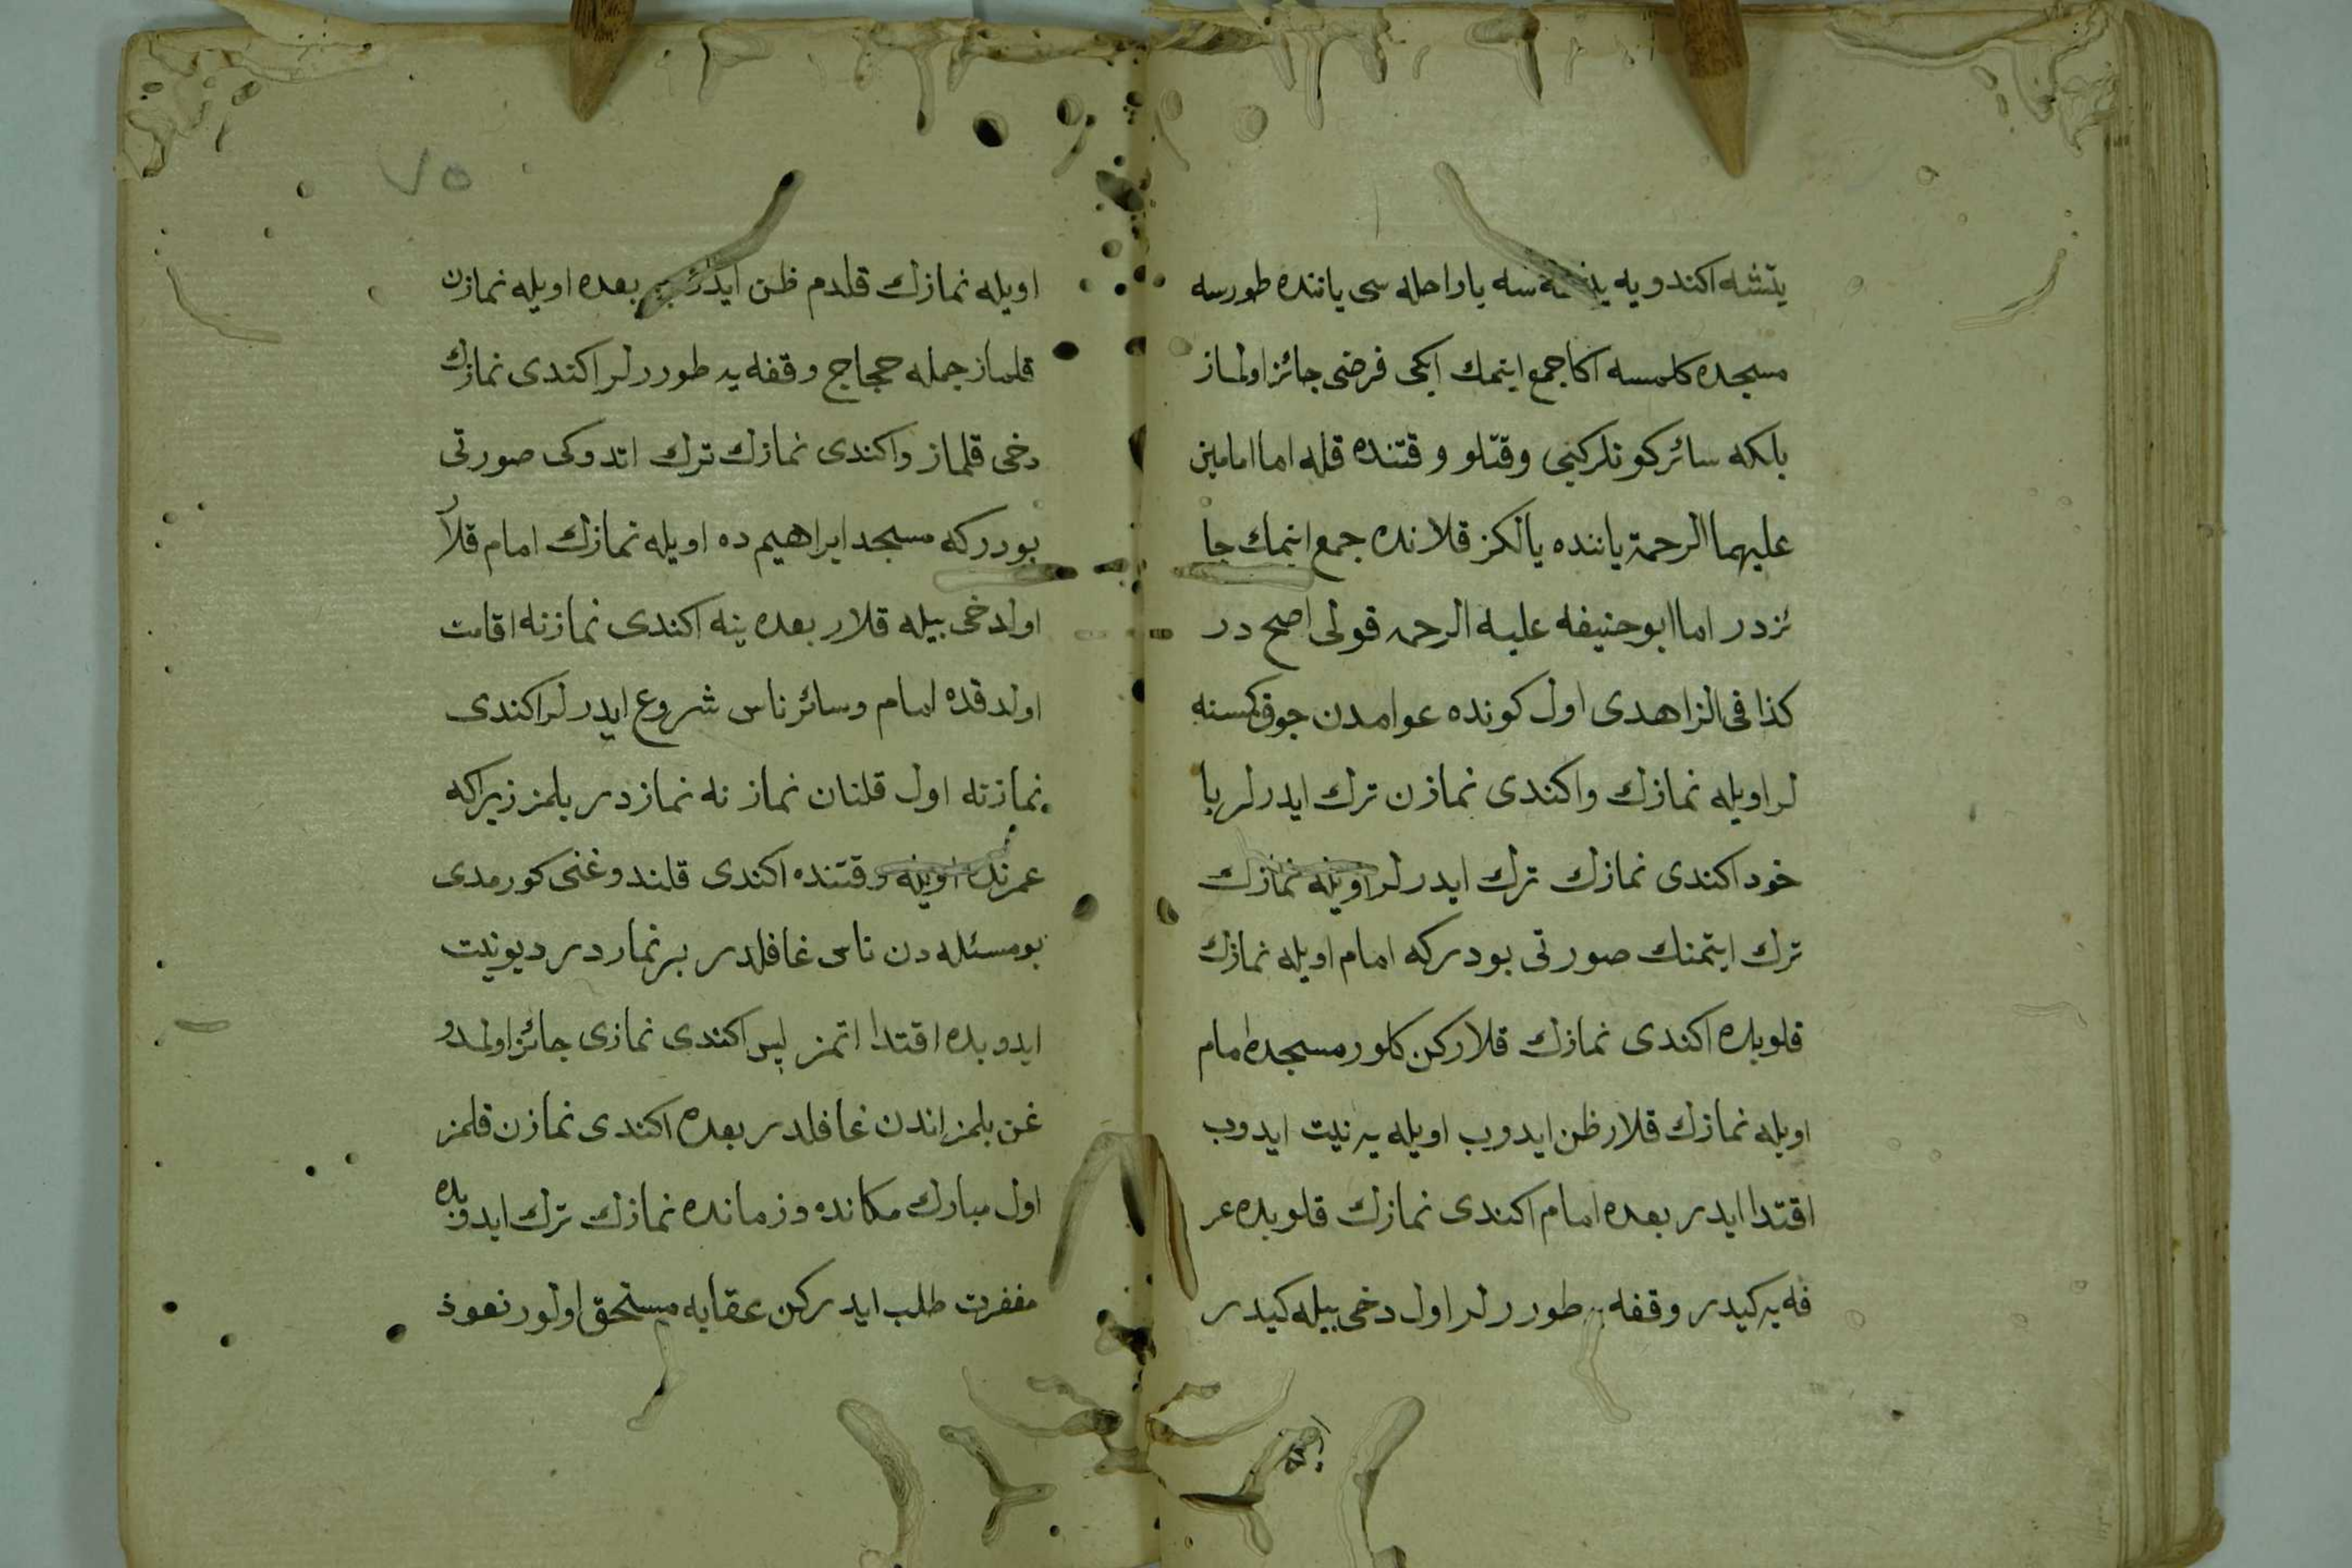 يتشه اكندويه يتشمسه ياراحله سى ياننده طورسه
مسجده كلمسه اكا جمع ايتمك ايكى فرضى جائز اولماز
بلكه سائر كونلركبى وقتلو وقتنده قله اما امامين
عليهما الرحمة ياننده يالكز قلانده جمع ايتمك جا
ئزدر اما ابو حنيفه عليه الرحمه قولى اصح در
كذا فى الزاهدى اول كونده عوامدن جوق كمسنه
لر اويله نمازك واكندى نمازن ترك ايدرلر يا
خود اكندى نمازك ترك ايدرلر اويله نمازك
ترك ايتمنك صورتى بودركه امام اويله نمازك
قلوبده اكندى نمازك قلاركن كلور مسجده امام
اويله نمازك قلار ظن ايدوب اويله يه نيت ايدوب
اقتدا ايدر بعده امام اكندى نمازك قلوبده عر
فه يه كيدر وقفه يه طوررلر اول دخى بيله كيدر
٧٥
اويله نمازك قلدم ظن ايدر بعده اويله نمازن
قلماز جمله حجاج وقفه يه طوررلر اكندى نمازك
دخى قلماز واكندى نمازك ترك اتدوكى صورتى
بودركه مسجد ابراهيم ده اويله نمازك امام قلار
اولدخى بيله قلار بعده ينه اكندى نمازنه اقامت
اولدقده امام وسائر ناس شروع ايدرلر اكندى
نمازنه اول قلنان نماز نه نمازدر بلمز زيراكه
عمرنده اويله وقتنده اكندى قلندوغنى كورمدى
بو مسئله دن ناس غافلدر بر نماردر ديونيت
ايدوبده اقتدا اتمز پس اكندى نمازى جائز اولمدو
غن بلمز اندن غافلدر بعده اكندى نمازن قلمز
اول مبارك مكانده وزمانده نمازك ترك ايدوبده
مغفرت طلب ايدركن عقابه مستحق اولور نعوذ